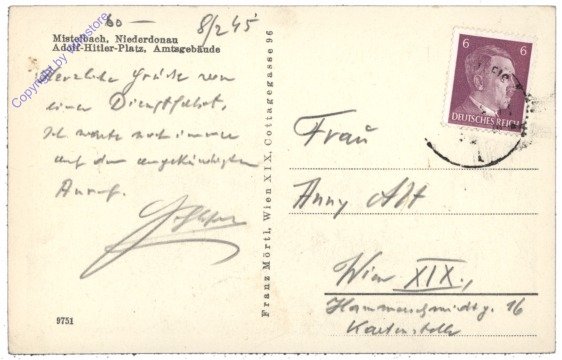 60—
8/2 45
Mistelbach, Niederdonau
Adolf-Hitler-Platz, Amtsgebäude
Copyright by wnstore
Herzliche Grüße von
einer Dienstfahrt,
Ich warte noch immer
auf den angekündigten
Anruf.
Franz Mörtl, Wien XIX, Cottagegasse 96
6 6
DEUTSCHES REICH
Frau
Anny Adt
Wien XIX.,
Hammerschmidtg. 16
Kartenstelle
9751